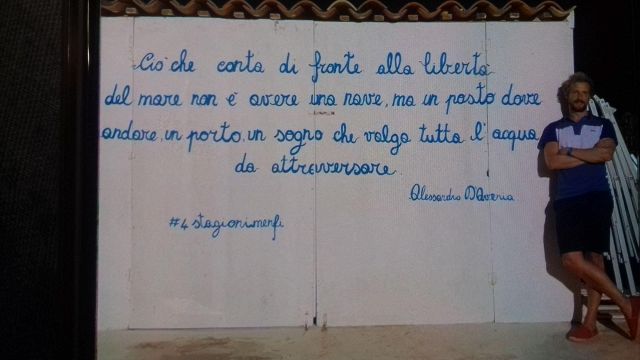 Ciò che conta di fronte alla libertà
del mare non è avere una nave, ma un posto dove
andare, un porto, un sogno che valga tutta l'acqua
da attraversare.
Alessandro D'Avenia
#4stagionimenfi